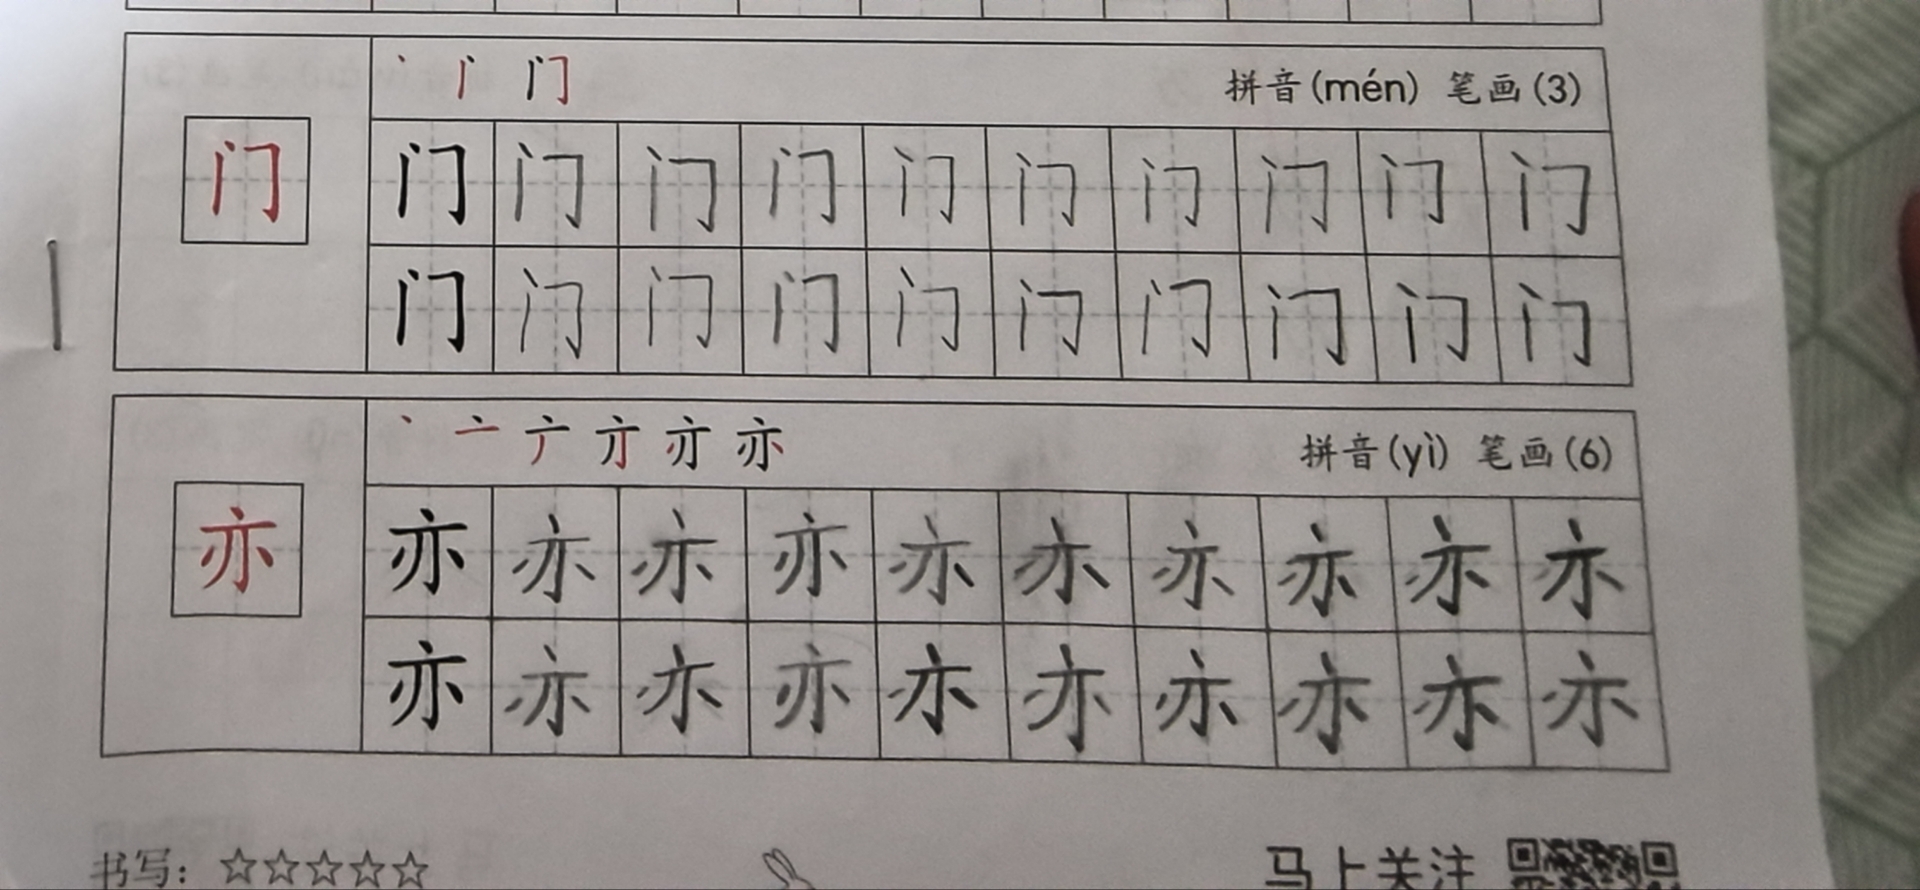 丶 门 门 拼音(mén) 笔画(3)
门 门 门 门 门 门 门 门 门 门 门
门 门 门 门 门 门 门 门 门 门
丶 亠 亦 拼音(yì) 笔画(6)
亦 亦 亦 亦 亦 亦 亦 亦 亦 亦 亦
亦 亦 亦 亦 亦 亦 亦 亦 亦 亦
书写：☆☆☆☆☆ 马上关注